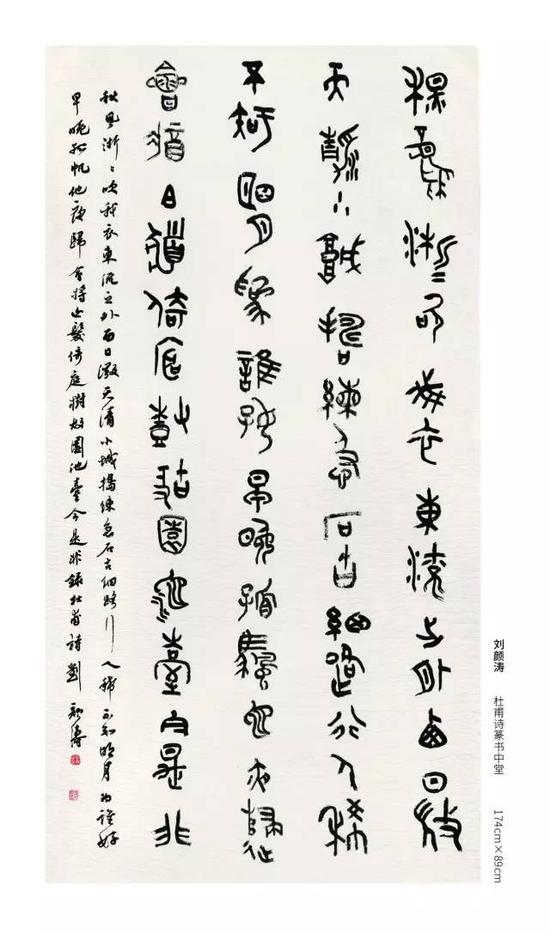 秋風淅〻吹我衣東流之外西日微
天清小城搗練急石古細路行人稀
不知明月為誰好早晚孤帆他夜歸
會將白髮倚庭樹故園池臺今是非
秋風淅〻吹我衣東流之外西日微天清小城搗練急石古細路行人稀不知明月為誰好
早晚孤帆他夜歸會將白髮倚庭樹故園池臺今是非錄杜甫詩劉顏濤
刘颜涛 杜甫诗篆书中堂 174cm×89cm